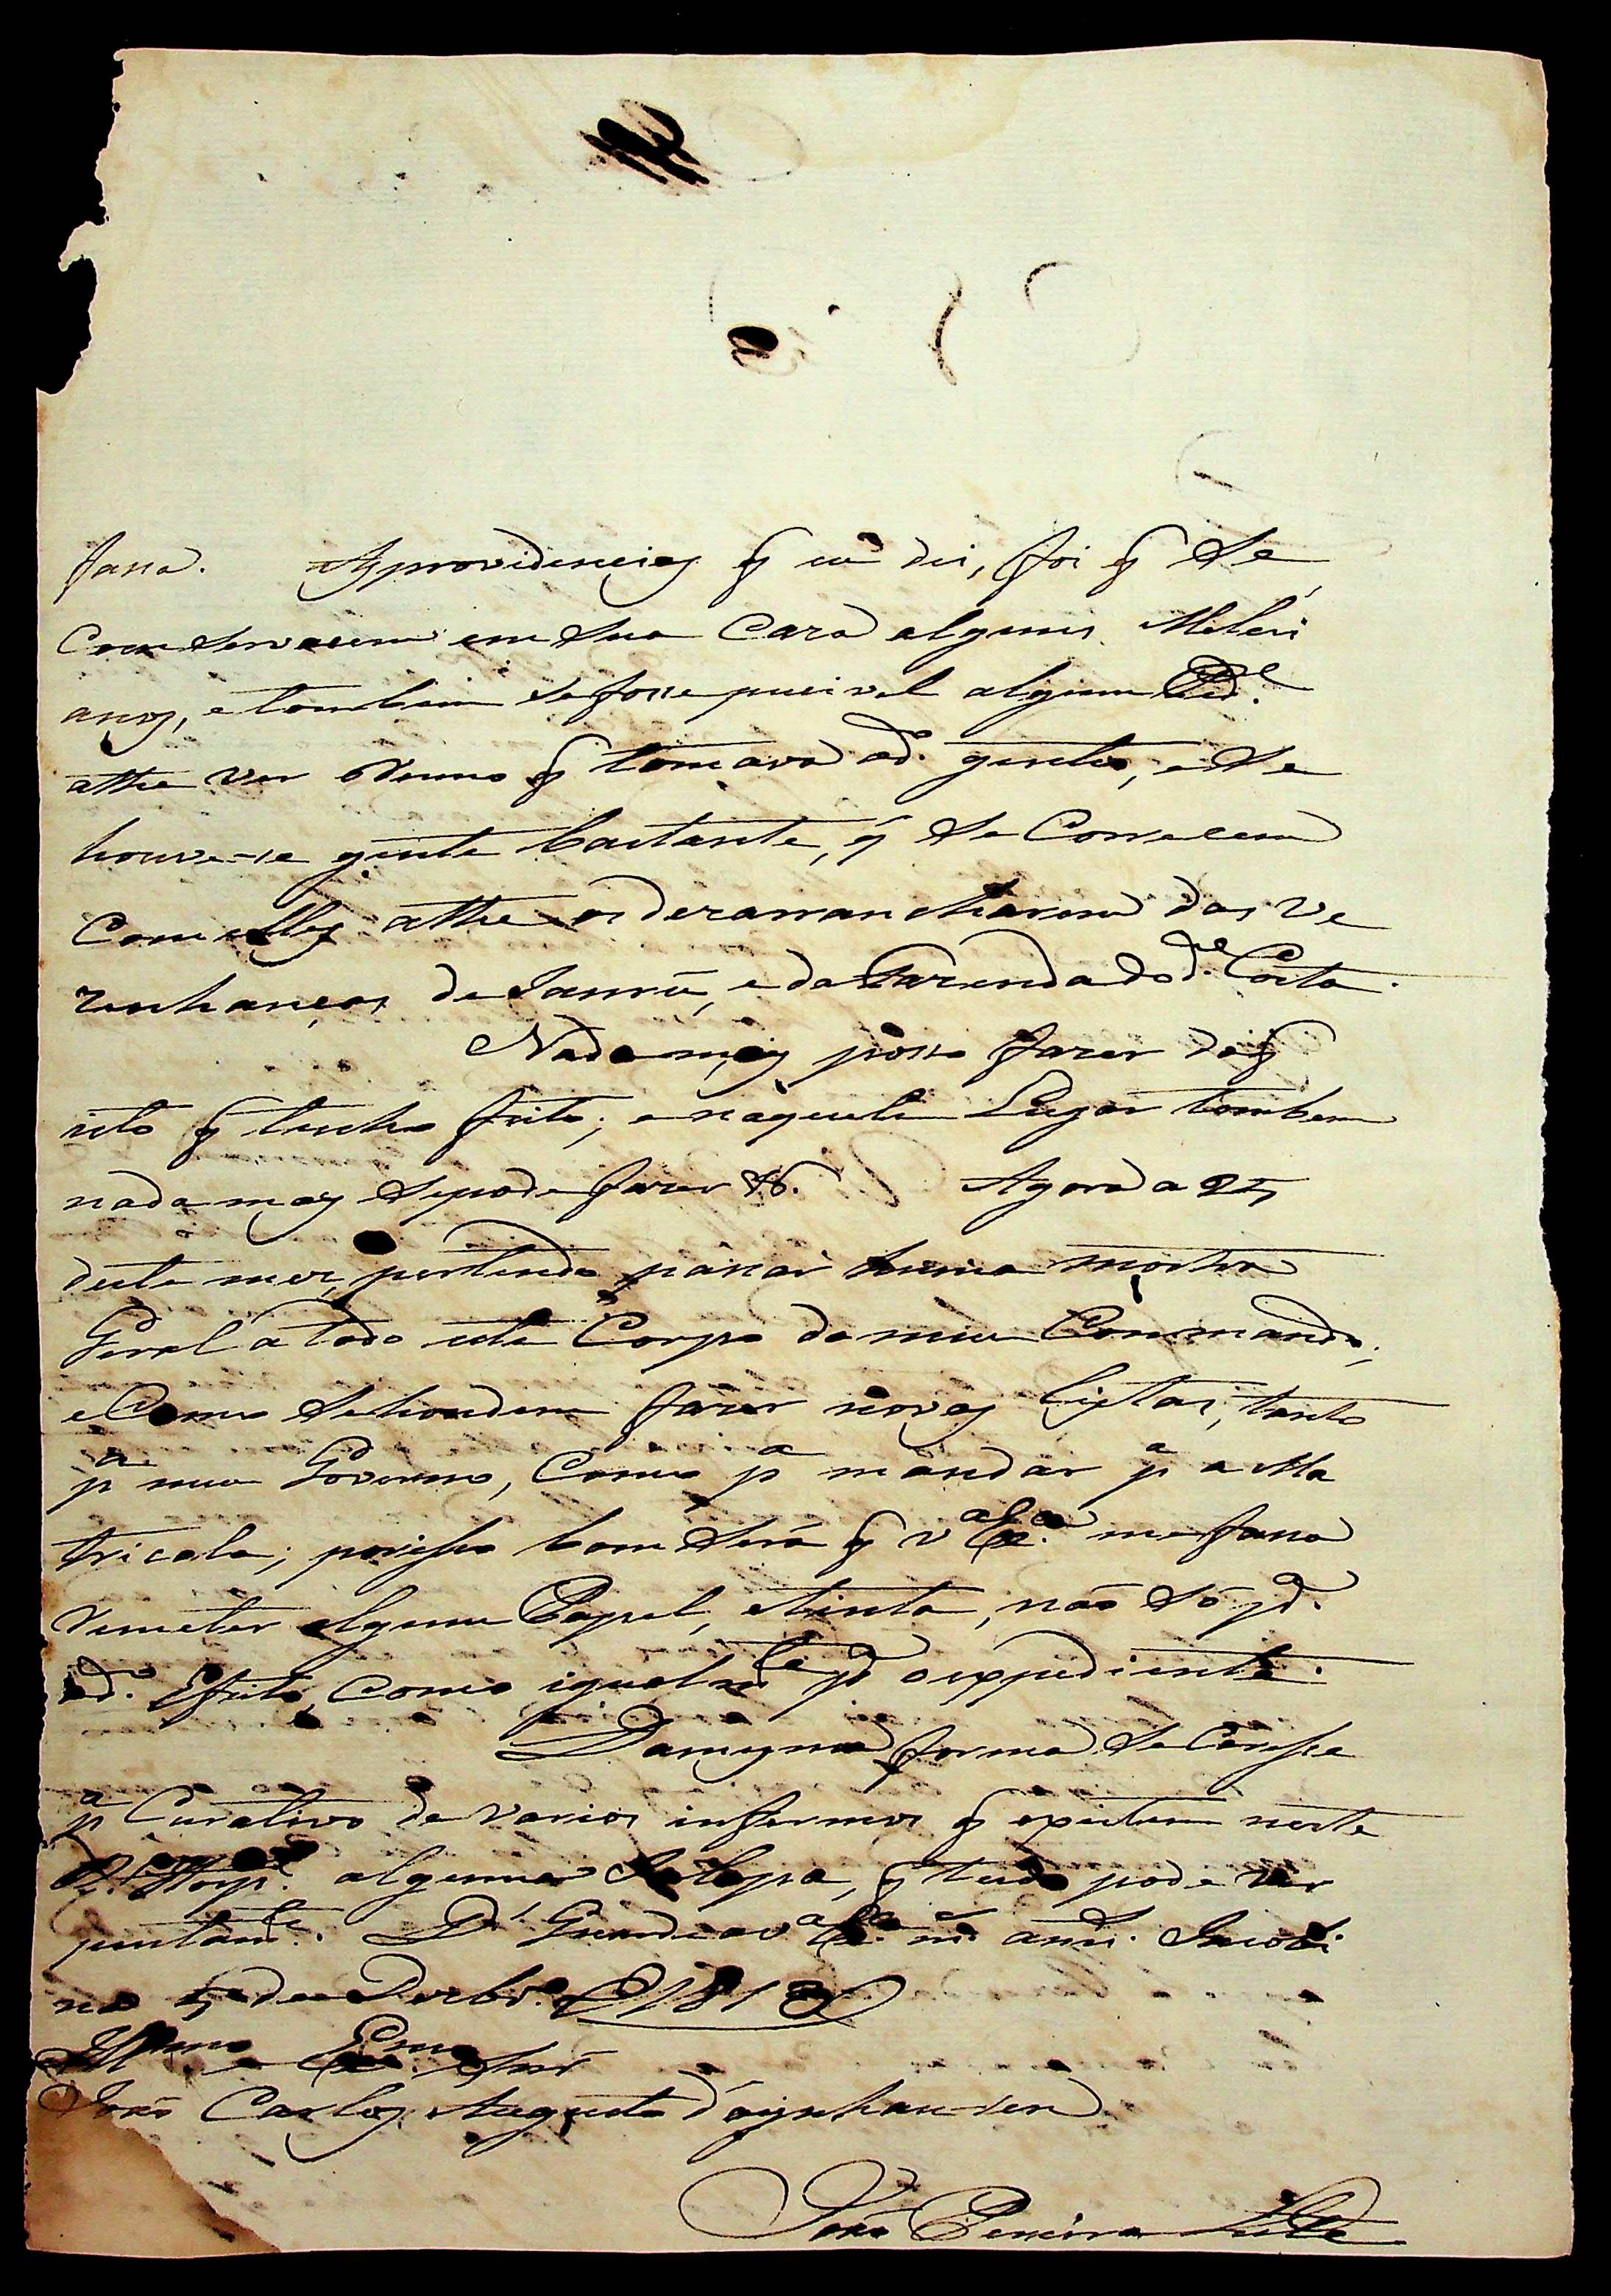 fassa. As providencias q eu dei, foi q Se
Conservacem em Sua Caza alguns Mileci
anos, e tambem Se fosse pucivel algum Ped.e
athe ver o Rumo q tomava o d.o gentio, e Se
houve-se gente bastante, q Se Corrcem
Com elles athe os dezarrancharem das Ve
zinhanças de Jaurú, e da Fazenda do d.e Costa.
Nada mais posso fazer do q
isto q tenho feito; e naquele Lugar tambem
nada mais Se pode fazer &. Agora a 25
deste mez, pertendo passar huma mostra
Geral a todo este Corpo do meu Commando;
e Como Se handem fazer novas listas, tanto
p.a meu Governo, Como p.a mandar p.a a Ma
tricola; porisso bom Será q V Ex.a me fassa
remeter algum Papel, e tinta, não Só p.a
o d.o Efeito, Como igualm.te p.a o expediente.
Da mesma forma Se Caresse
p.a Curativo de varios infermos q existem neste
R. Hosp.l alguma Jalapa, q tudo pode vir
juntam.te. D.s Guarde a V Ex.a m. ann.s Jacobi
na 5 de Dezbr.o de 1813
Ill.mo e Ex.mo Snr
João Carlos Augusto d'Oeynhausen
João Pereira Leite